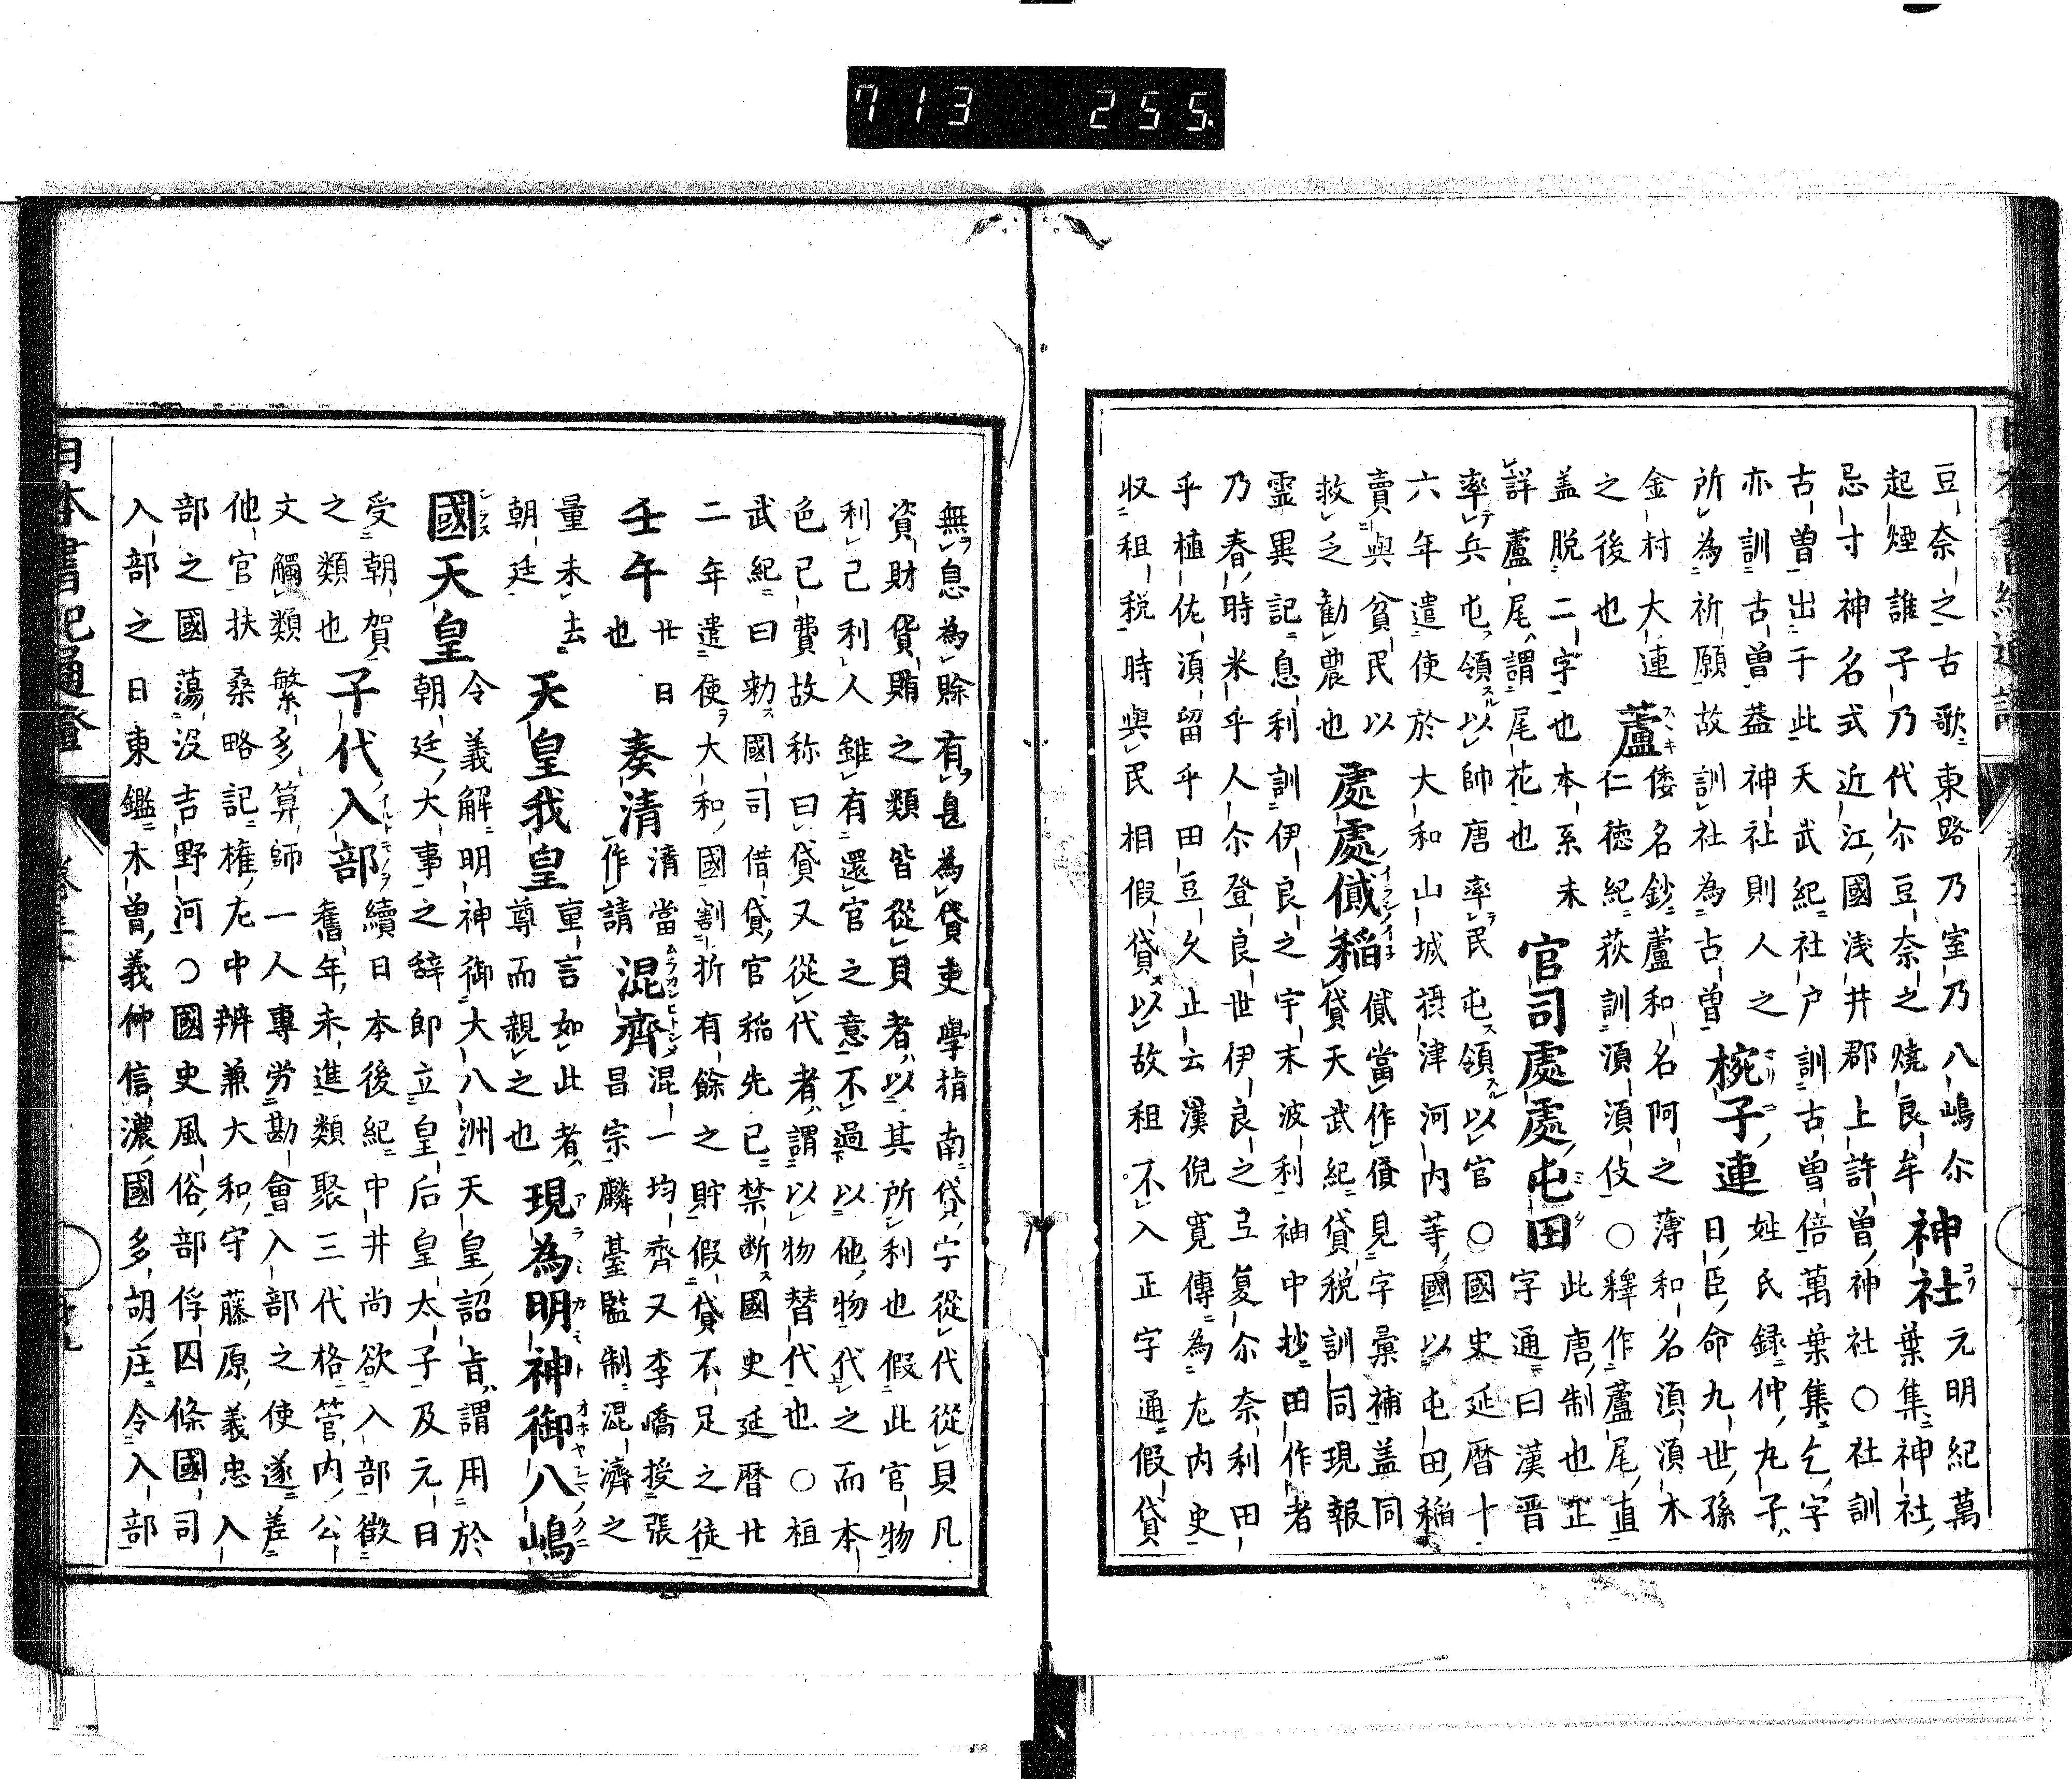 713 255
豆奈之古歌東路乃室乃八嶋尓神社元明紀萬
起煙誰子乃代尓豆奈之燒良牟神社葉集神社
忌寸神名式近江國浅井郡上許曽神社○社訓
古曽出于此天武紀社戸訓古曽倍萬葉集乞字
亦訓古曽葢神社則人之姓氏録仲九子
所為祈願故訓社為古曽椀子連日臣命九世孫
金村大連蘆倭名鈔蘆和名阿之薄和名湏湏木
之後也仁徳紀荻訓湏湏伎○釋作蘆尾直
盖脱二字也本系未官司處處屯田此唐制也正
詳蘆尾謂尾花也字通曰漢晋
率兵屯領以帥唐率民屯領以官○國史延暦十
六年遣使於大和山城摂津河内等國以屯田稲
賣與貧民以處處貸稲貸當作貸見字彙補盖同
救乏勧農也貸天武紀貸税訓同現報
霊異記息利訓伊良之宇末波利袖中抄田作者
乃春時米乎人尓登良世伊良之弖复尓奈利田
乎植佐湏留乎田豆久止云漢倪寛傳為左内史
収租税時與民相假貸以故租不入正字通假貸
無息為賒有息為貸吏學指南貸字從代從貝凡
資財貨賄之類皆從貝者以其所利也假此官物
利己利人雖有還官之意不過以他物代之而本
色已費故称曰貸又從代者謂以物替代也○桓
武紀曰勅國司借貸官稲先已禁断國史延暦廿
二年遣使大和國割折有餘之貯假貸不足之徒
壬午廿日也奏清清當作請混齊混一均齊又李嶠授張
昌宗麟臺監制混濟之
量未去天皇我皇重言如此者現為明神御八嶋
朝廷尊而親之也
國天皇令義解明神御大八洲天皇詔旨謂用於
朝廷大事之辞即立皇后皇太子及元日
受朝賀子代入部續日本後紀中井尚欲入部徴
之類也舊年未進類聚三代格管内公
文觸類繁多算師一人專労勘會入部之使遂差
他官扶桑略記権左中辨兼大和守藤原義忠入
部之國蕩没吉野河○國史風俗部俘囚條國司
入部之日東鑑木曽義仲信濃國多胡庄令入部
日本書紀通證